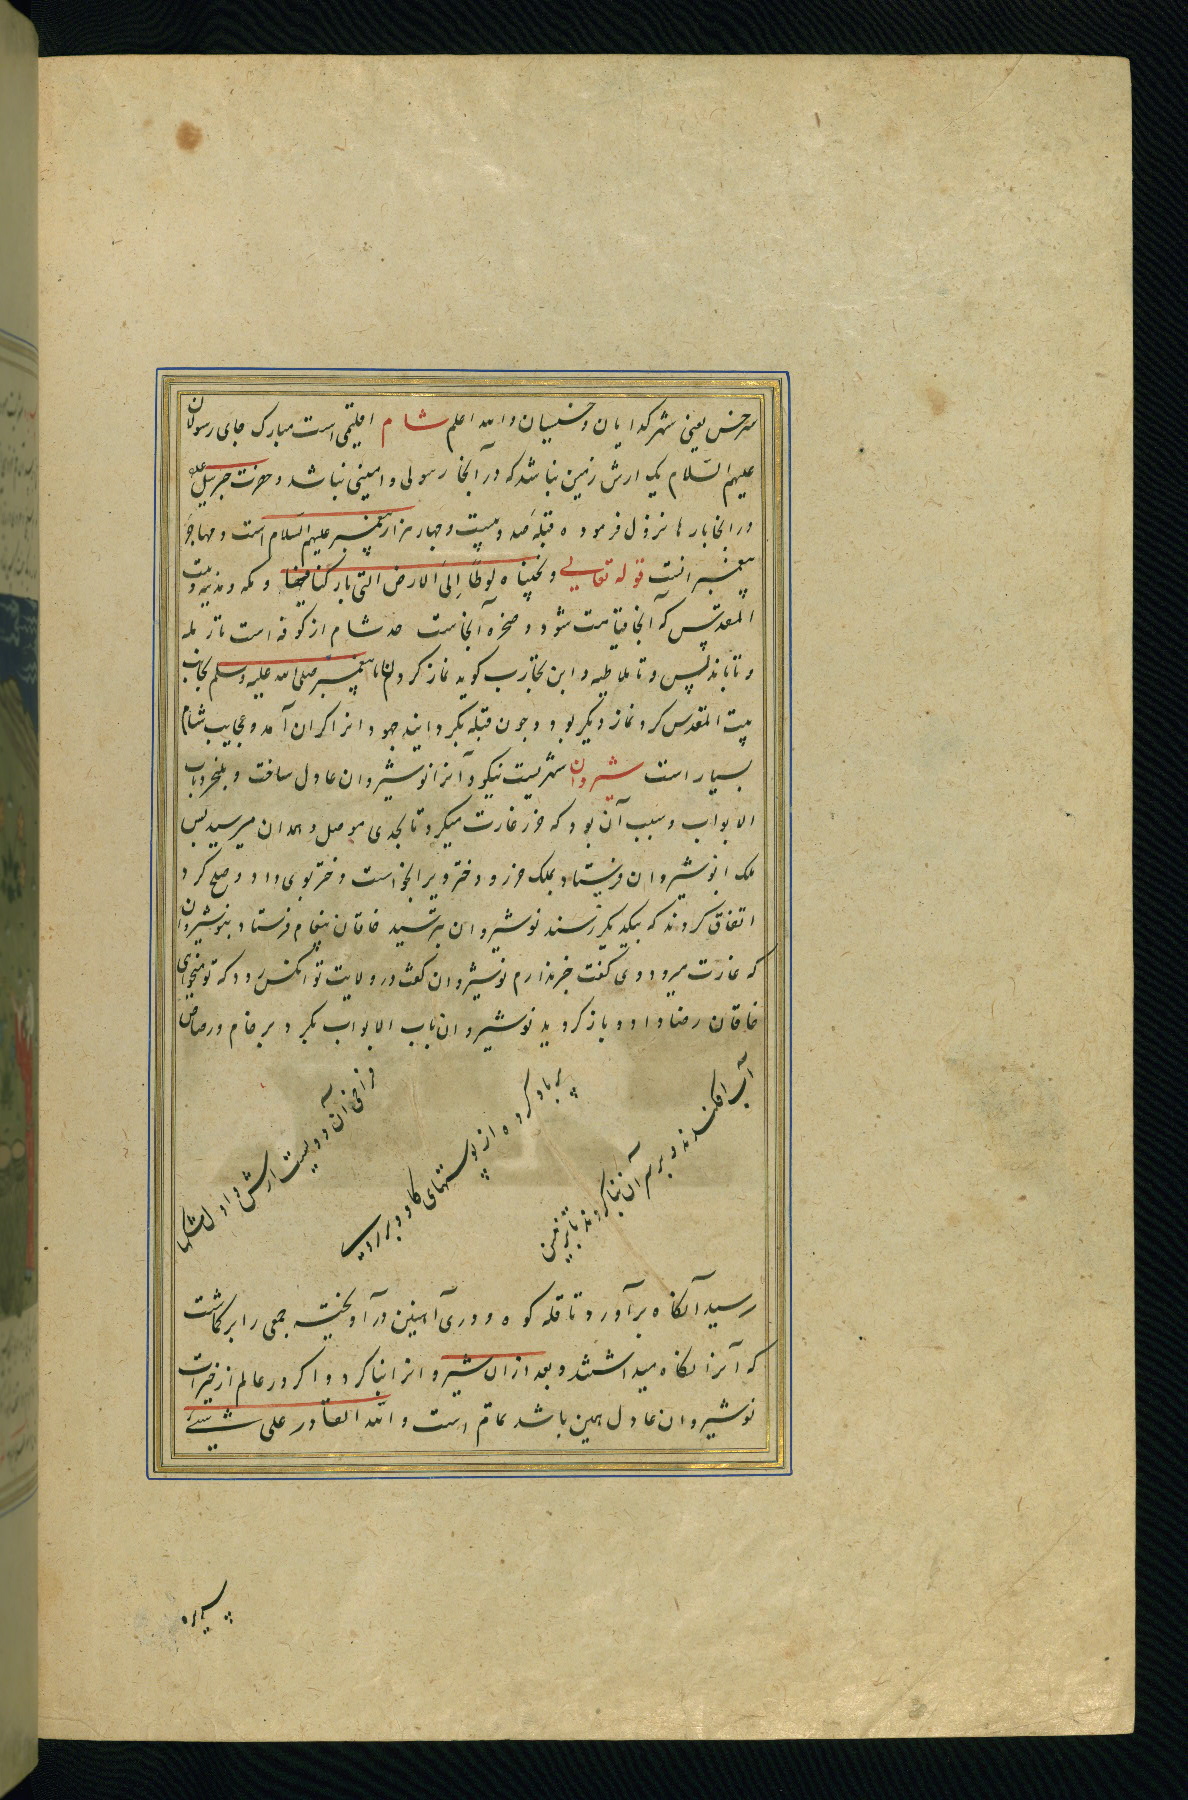 سرخس یعنی شهر کدایان و خسیسان والله اعلم شام اقلیمی است مبارک جای رسولان
علیهم السّلام یک ارش زمین نباشد که در آنجا رسولی و امینی نباشد و حضرت جبرییل علیه
در انجا بارها نزول فرموده قبلهٔ صد و بیست و چهار هزار پیغمبر علیهم السّلام است و مهاجر
پیغمبرانست قوله تعالی و نجیناه و لوطًا اِلیَ الارض التی بارکنا فیها و مکه و مدینه و بیت
المقدّس که آنجا قیامت شود و صخره آنجاست حد شام از کوفه است تا رمله
و تا بانداس و تا ملاطیه و ابن محارب کوید نماز کردم تا پیغمبر صلی الله علیه وسلم بجانب
بیت المقدس کرد نماز دیکر بود و چون قبله بکردانید جهودانرا کران آمد و عجایب شام
بسیار است شیروان شهریست نیکو و آنرا نوشیروان عادل ساخت و بلنجر و باب
الابواب و سبب آن بود که خزر غارت میکرد تا بحدی موصل و همدان میرسید پس
ملک انوشیروان فرستاد بملک خزر و دختر ویرا بخواست و دختر بوی داد و صلح کرد
اتفاق کردند که بیکدیکر رسند نوشیروان بترسید خاقان پیغام فرستاد بنوشیروان
که غارت میرود وی کفت خبر ندارم نوشیروان کفت در ولایت تو انکس رود که تو میخواهی
خاقان رضا داد و باز کردید نوشیروان باب الابواب بکرد بر خام و رصاص
فراخی آن دویست ارش و اول مشکها
پر باد کرده از پوستهای کاو و بر روی
آب افکندند و بر سر آن بنا کردند تا بزمین
رسید آنکاه برآورد تا قله کوه و دری آهنین درآویخته جمعی را برکماشت
که آنرا نکاه میداشتند و بعد ازان شیروانرا بنا کرد و اکر در عالم از خیرات
نوشیروان عادل همین باشد تمام است و الله القادر علی شیئ